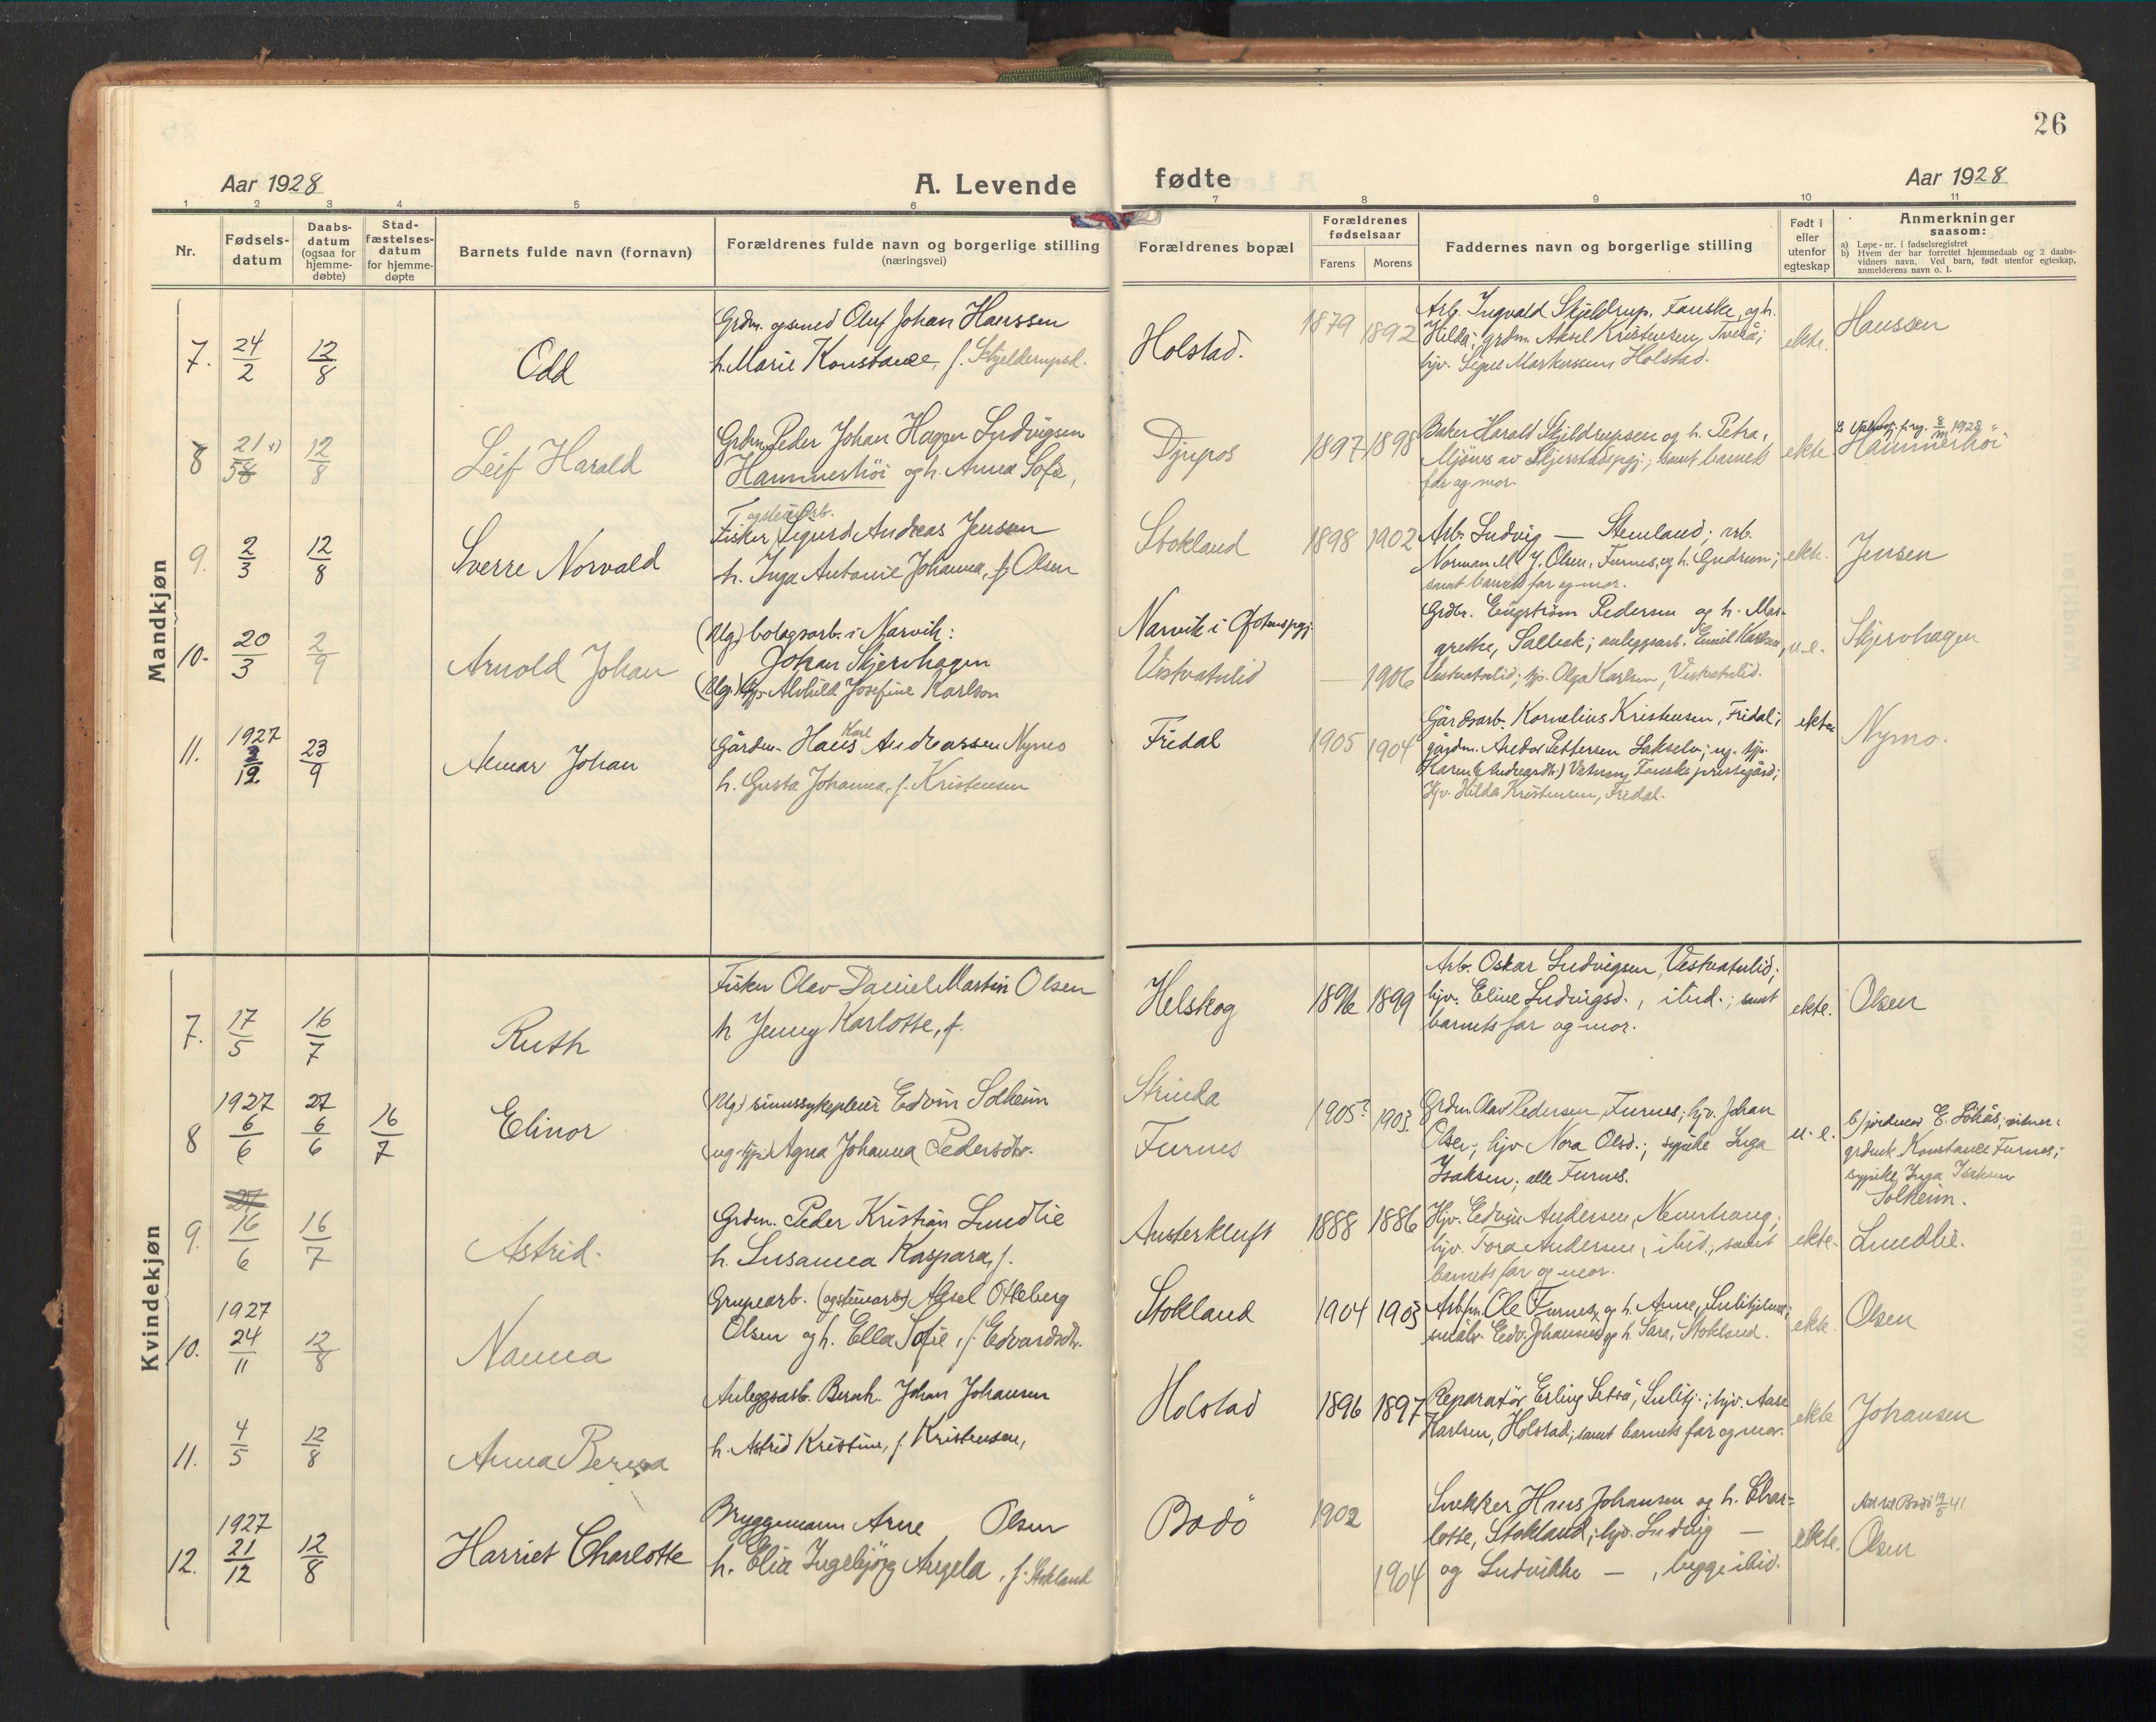 26
Aar 1928 A. Levende fødte Aar 1928
1 2 3 4 5 6 7 8 9 10 11
Nr. Fødsels-datum Daabs-datum (ogsaa for hjemme-døbte) Stad-fæstelses-datum for hjemme-døpte Barnets fulde navn (fornavn) Forældrenes fulde navn og borgerlige stilling (næringsvei) Forældrenes bopæl Forældrenes fødselsaar Farens Morens Faddernes navn og borgerlige stilling Født i eller utenfor egteskap Anmerkninger saasom:
a) Løpe-nr. i fødselsregistret
b) Hvem der har forrettet hjemmedaab og 2 daabs-
vidners navn. Ved barn, født utenfor egteskap,
anmelderens navn o. l.
Mandkjøn
7. 24/2 12/8 Odd
Grdm. og smed Oluf Johan Hanssen
h. Marie Konstance, f. Skjelderupsd.
Holstad. 1879 1892
Arb. Ingvald Skjeldrup, Fauske, og h.
Hilda; grdm. Aksel Kristensen, Tverå;
hjv. Signe Markussen, Holstad.
ekte. Hanssen
8 21/5 12/8 Leif Harald
Grdm. Peder Johan Hagen Ludvigsen
Hammerhöi og h. Anna Sofie,
Djupos 1897 1898
Baker Harald Skjeldrupsen og h. Petra,
Mjönes av Skjerstad pgj.; samt barnets
far og mor.
ekte. 1928
Hammerhöi
9. 2/3 12/8 Sverre Norvald
og stenarb.
Fisker Sigurd Andreas Jensen
h. Inga Antonie Johanna, f. Olsen
Stokland 1898 1902
Arb. Ludvig — Stemland; arb.
Norman M. J. Olsen, Furnes, og h. Gudrun;
samt barnets far og mor.
ekte. Jensen
10. 20/3 2/9 Arnold Johan
(Ug.) bolagsarb. i Narvik:
Johan Skjervhagen
(Ug.) tjp. Alvhild Josefine Karlson
Narvik i Ofoten pgj.
Vestvatnlid — 1906
Grdbr. Engström Pedersen og h. Mar-
grethe, Salleak; anleggsarb. Emil Karlsen,
Vestvatnlid; tjp. Olga Karlsen, Vestvatnlid.
u.e. Skjervhagen
11. 1927 3/12 23/9 Almar Johan
Gårdm. Hans Karl Andreassen Nymo
h. Gusta Johanna, f. Kristensen
Fridal 1905 1904
Gårdsarb. Kornelius Kristensen, Fridal;
gårdm. Anedor Pettersen Lakselv; ug. tjp.
Karen (Andreasdtr.) Vatnan, Fauske prestegård;
Hjv. Hilda Kristensen, Fridal.
ekte Nymo.
Kvindekjøn
7. 17/5 16/7 Ruth
Fisker Olav Daniel Martin Olsen
h Jenny Karlotte, f.
Helskog 1896 1899
Arb. Oskar Ludvigsen, Vestvatnlid;
hjv. Eline Ludvigsd., ibid.; samt
barnets far og mor.
ekte. Olsen
8 1927 6/6 27 6/6 16/7 Elinor
(Ug.) sinnssykepleier Edvin Solheim
(ug. tjp.) Agna Johanna Pedersdtr.
Strinda
Furnes 1905? 1903.
Grdm. Olav Pedersen, Furnes; hjv. Johan
Olsen; hjv. Nora Olsd.; sypike Inga
Isaksen; alle Furnes.
u.e. b) jordmor E. Lökås; vitner:
grdenk. Konstance Furnes;
sypike Inga Isaksen
Solheim.
9. 16/6 16/7 Astrid.
Grdm. Peder Kristian Lundlie
h. Susanna Kaspara, f.
Austerkluft 1888 1886
Hjv. Edvin Andersen, Neverhaug;
hjv. Tora Andersen, ibid., samt
barnets far og mor.
ekte. Lundlie.
10. 1927 24/11 12/8 Nanna
Grupearb. (og stenarb.) Aksel Otteberg
Olsen og h. Ella Sofie, f. Edvardsdtr.
Stokland 1904 1903
Arbfm. Ole Furnes, og h. Anne, Sulitjelma;
småbr. Edv. Johansen og h. Sara, Stokland.
ekte. Olsen
11. 4/5 12/8 Anna
Anleggsarb. Bernh. Johan Johansen
h. Astrid Kristine, f. Kristensen,
Holstad 1896 1897
Reparatör Erling Setså, Sulitj.; hjv. Aase
Karlsen, Holstad; samt barnets far og mor.
ekte Johansen
12. 1927 21/12 12/8 Harriet Charlotte
Bryggemann Arne Olsen
h. Elia Ingebjörg Angela, f. Stokland
Bodö 1902 1904
Snekker Hans Johansen og h. Char=
lotte, Stokland; hjv. Ludvig —
og Ludvikke — , begge ibid.
ekte. Att. til Bodö 19/5 41
Olsen